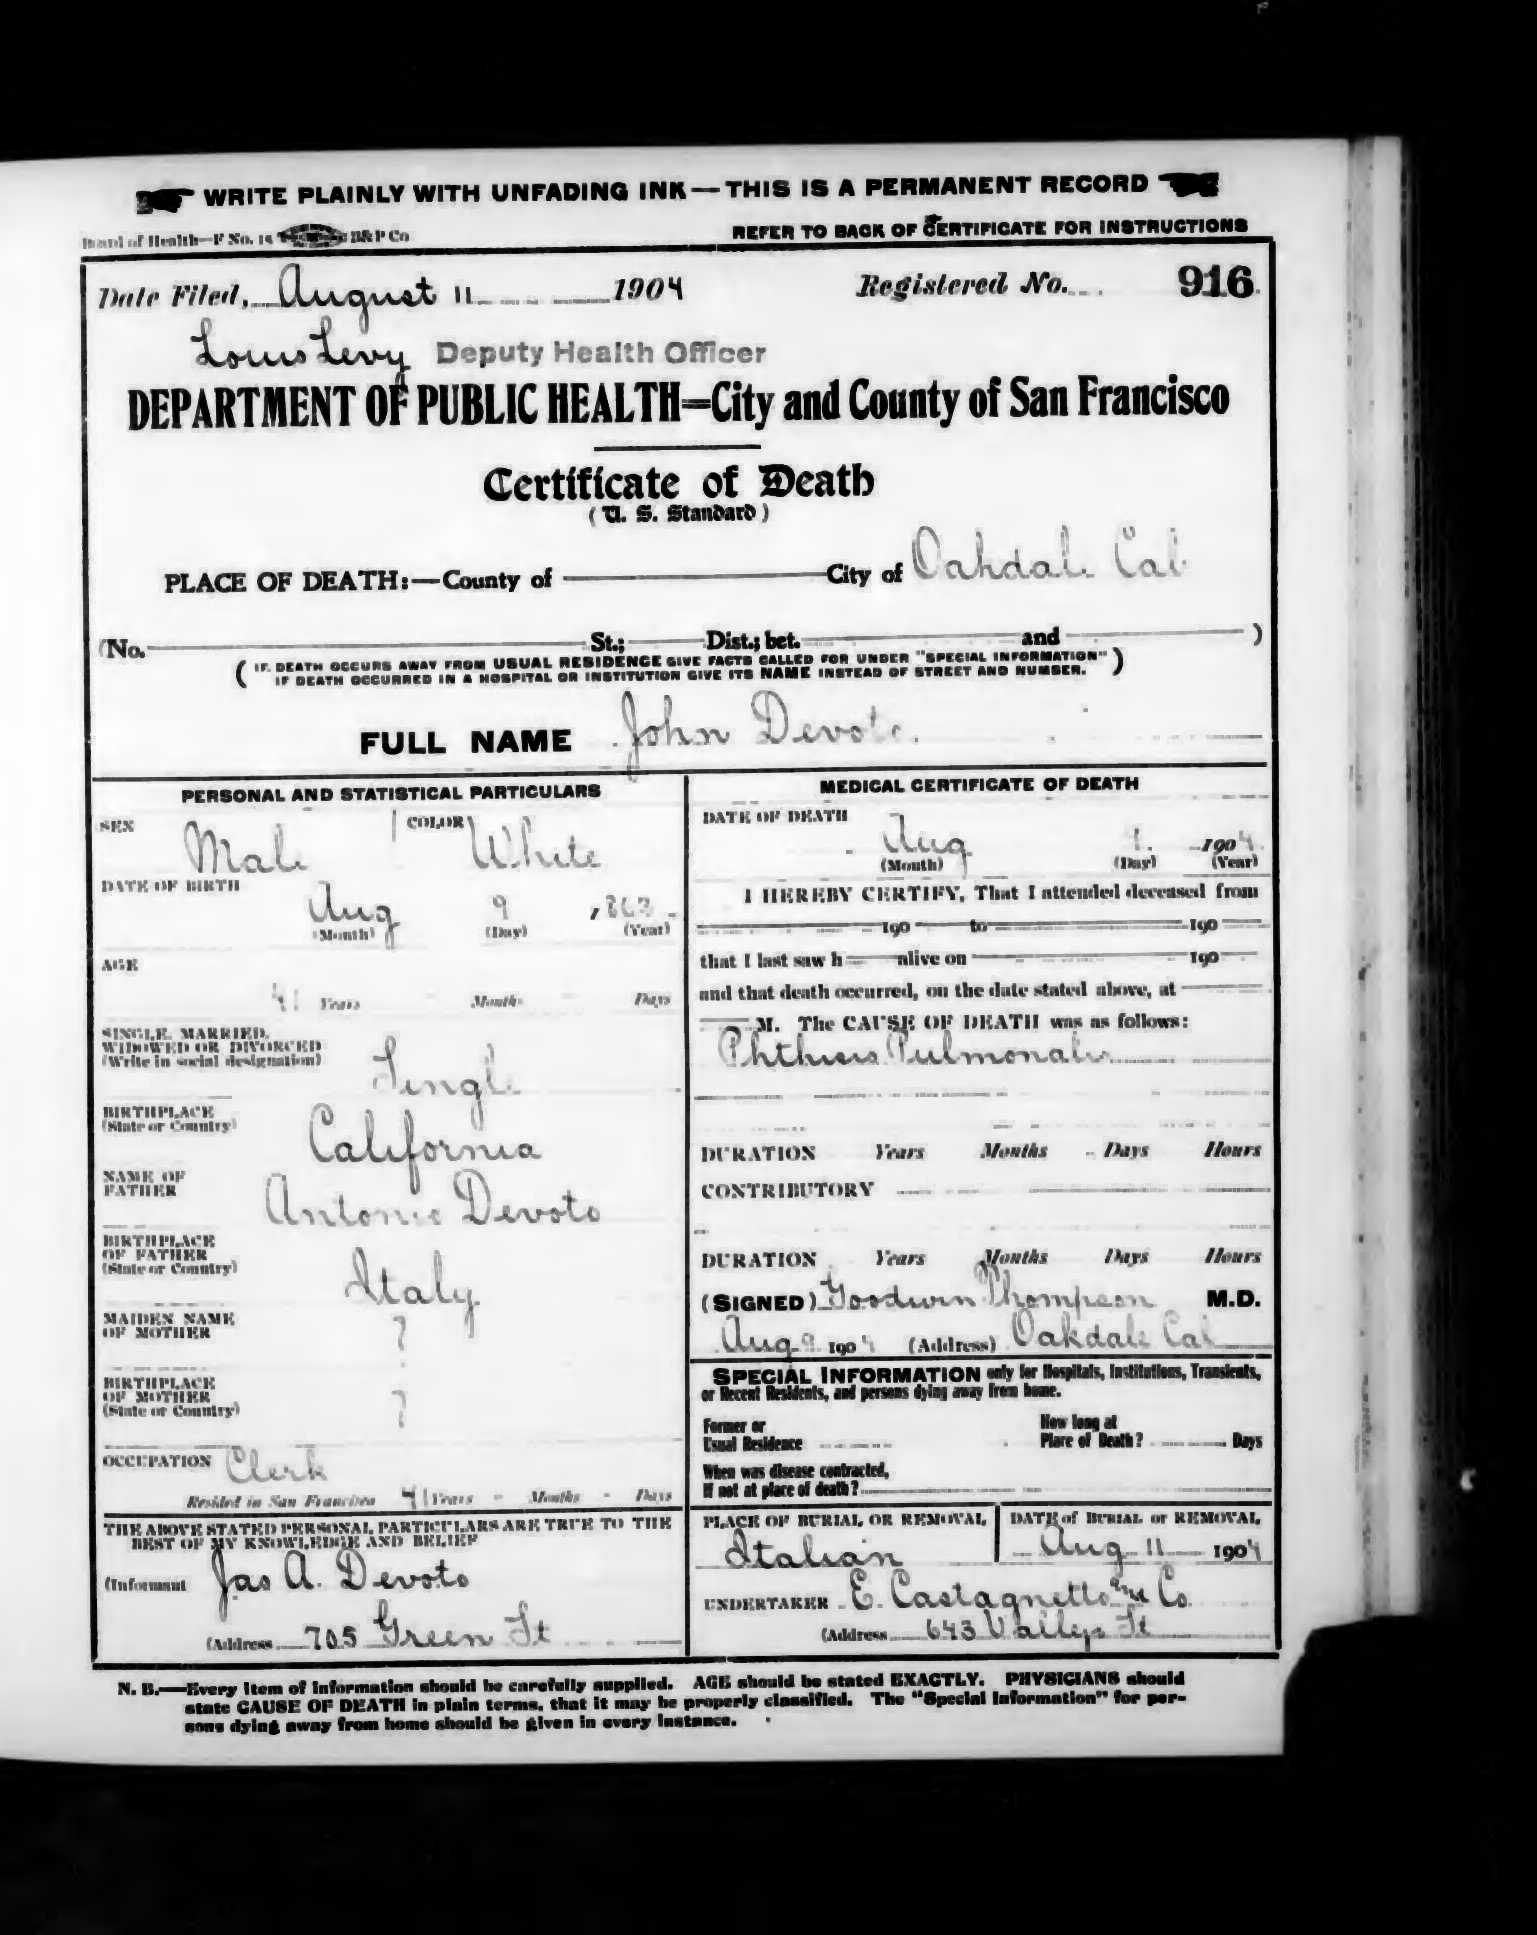 WRITE PLAINLY WITH UNFADING INK — THIS IS A PERMANENT RECORD
Board of Health—F No. 15 B&P Co
REFER TO BACK OF CERTIFICATE FOR INSTRUCTIONS
Date Filed, August 11 1904 Registered No. 916
Louis Levy Deputy Health Officer
DEPARTMENT OF PUBLIC HEALTH=City and County of San Francisco
Certificate of Death
(U. S. Standard)
PLACE OF DEATH:—County of City of Oakdale Cal
(No. St.; Dist.; bet. and )
(IF DEATH OCCURS AWAY FROM USUAL RESIDENCE GIVE FACTS CALLED FOR UNDER "SPECIAL INFORMATION"
IF DEATH OCCURRED IN A HOSPITAL OR INSTITUTION GIVE ITS NAME INSTEAD OF STREET AND NUMBER.)
FULL NAME John Devoto.
PERSONAL AND STATISTICAL PARTICULARS
SEX Male COLOR White
DATE OF BIRTH
Aug 9
(Month) (Day) (Year)
AGE
41 Years Months Days
SINGLE, MARRIED,
WIDOWED OR DIVORCED
(Write in social designation) Single
BIRTHPLACE
(State or Country) California
NAME OF
FATHER Antonio Devoto
BIRTHPLACE
OF FATHER
(State or Country) Italy
MAIDEN NAME
OF MOTHER ?
BIRTHPLACE
OF MOTHER
(State or Country) ?
OCCUPATION Clerk
Resided in San Francisco 41 Years - Months - Days
THE ABOVE STATED PERSONAL PARTICULARS ARE TRUE TO THE
BEST OF MY KNOWLEDGE AND BELIEF
(Informant Jas A. Devoto
(Address 705 Green St
MEDICAL CERTIFICATE OF DEATH
DATE OF DEATH
Aug 1904
(Month) (Day) (Year)
I HEREBY CERTIFY, That I attended deceased from
190 to 190
that I last saw h alive on 190
and that death occurred, on the date stated above, at
M. The CAUSE OF DEATH was as follows:
Phthisis Pulmonalis
DURATION Years Months Days Hours
CONTRIBUTORY
DURATION Years Months Days Hours
(SIGNED) Goodwin Thompson M.D.
Aug 9 1904 (Address) Oakdale Cal
SPECIAL INFORMATION only for Hospitals, Institutions, Transients,
or Recent Residents, and persons dying away from home.
Former or
Usual Residence
How long at
Place of Death? Days
When was disease contracted,
If not at place of death?
PLACE OF BURIAL OR REMOVAL
Italian
DATE of BURIAL or REMOVAL
Aug 11 1904
UNDERTAKER E. Castagnetto and Co
(Address 643 Vallejo St
N. B.—Every item of information should be carefully supplied. AGE should be stated EXACTLY. PHYSICIANS should
state CAUSE OF DEATH in plain terms, that it may be properly classified. The "Special Information" for per-
sons dying away from home should be given in every instance.